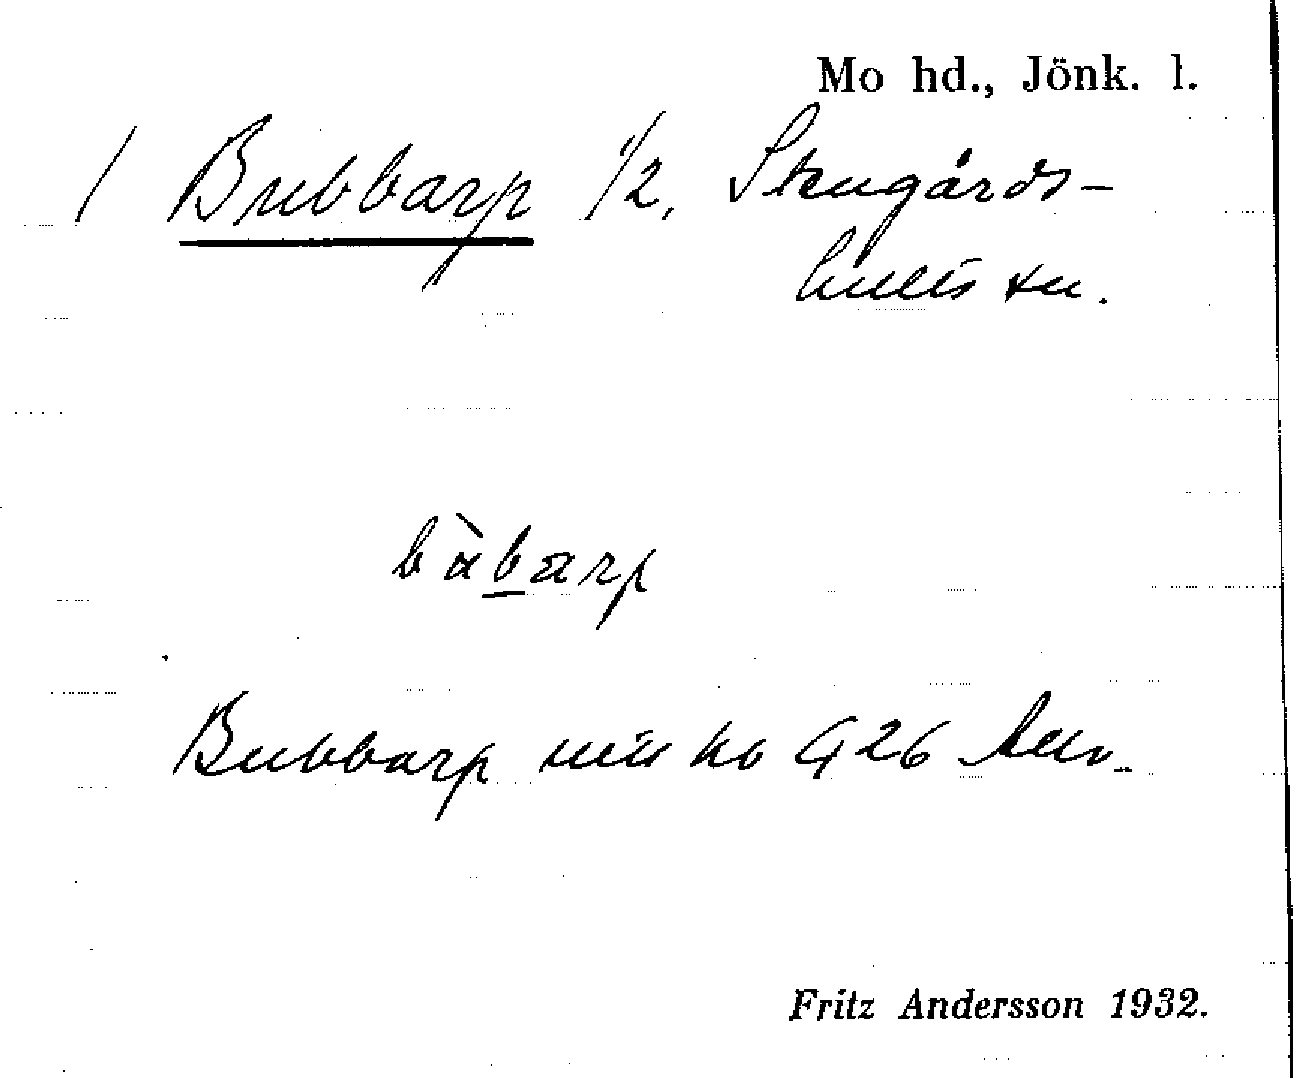 Mo hd., Jönk. l.
/ Bubbarp 1/2, Stengårds-
hults sn.
bàbarp
Bubbarp 426
Fritz Andersson 1932.